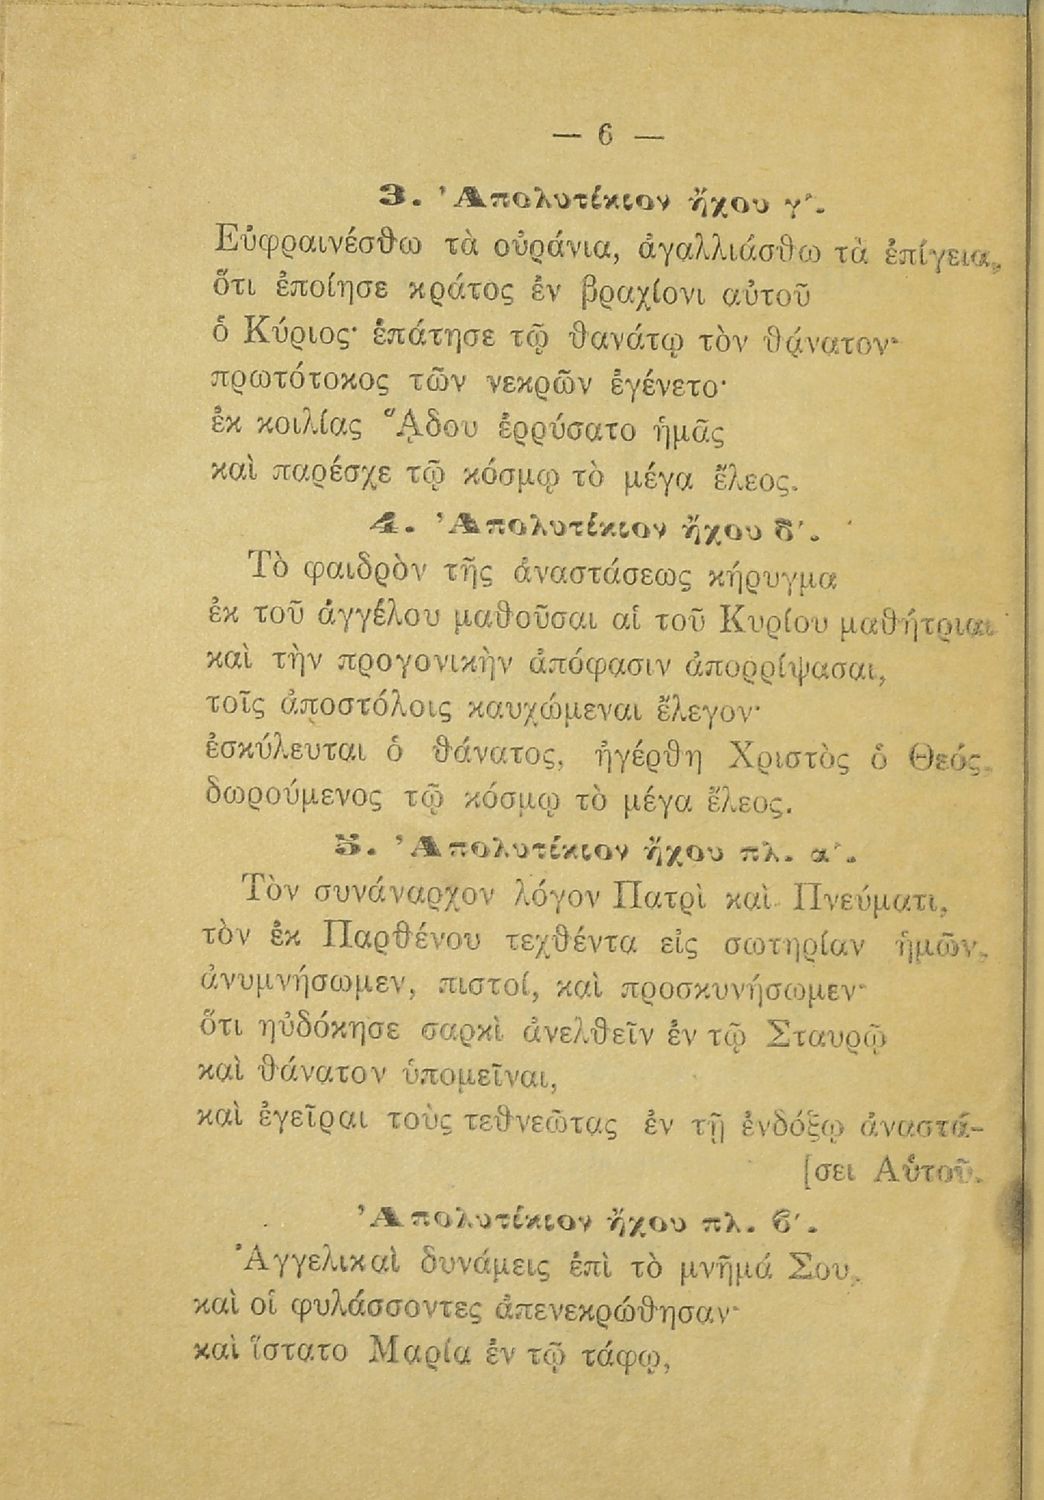 — 6 —
3. Ἀπολυτίκιον ἤχου γ´.
Εὐφραινέσθω τὰ οὐράνια, ἀγαλλιάσθω τὰ ἐπίγεια,
ὅτι ἐποίησε κράτος ἐν βραχίονι αὐτοῦ
ὁ Κύριος· ἐπάτησε τῷ θανάτῳ τὸν θάνατον·
πρωτότοκος τῶν νεκρῶν ἐγένετο·
ἐκ κοιλίας ᾍδου ἐρρύσατο ἡμᾶς
καὶ παρέσχε τῷ κόσμῳ τὸ μέγα ἔλεος.
4. Ἀπολυτίκιον ἤχου δ´.
Τὸ φαιδρὸν τῆς ἀναστάσεως κήρυγμα
ἐκ τοῦ ἀγγέλου μαθοῦσαι αἱ τοῦ Κυρίου μαθήτριαι
καὶ τὴν προγονικὴν ἀπόφασιν ἀπορρίψασαι,
τοῖς ἀποστόλοις καυχώμεναι ἔλεγον·
ἐσκύλευται ὁ θάνατος, ἠγέρθη Χριστὸς ὁ Θεός,
δωρούμενος τῷ κόσμῳ τὸ μέγα ἔλεος.
5. Ἀπολυτίκιον ἤχου πλ. α´.
Τὸν συνάναρχον λόγον Πατρὶ καὶ Πνεύματι,
τὸν ἐκ Παρθένου τεχθέντα εἰς σωτηρίαν ἡμῶν,
ἀνυμνήσωμεν, πιστοί, καὶ προσκυνήσωμεν·
ὅτι ηὐδόκησε σαρκὶ ἀνελθεῖν ἐν τῷ Σταυρῷ
καὶ θάνατον ὑπομεῖναι,
καὶ ἐγεῖραι τοὺς τεθνεῶτας ἐν τῇ ἐνδόξῳ ἀναστά-
[σει Αὑτοῦ.
Ἀπολυτίκιον ἤχου πλ. β´.
Ἀγγελικαὶ δυνάμεις ἐπὶ τὸ μνῆμά Σου,
καὶ οἱ φυλάσσοντες ἀπενεκρώθησαν·
καὶ ἵστατο Μαρία ἐν τῷ τάφῳ,